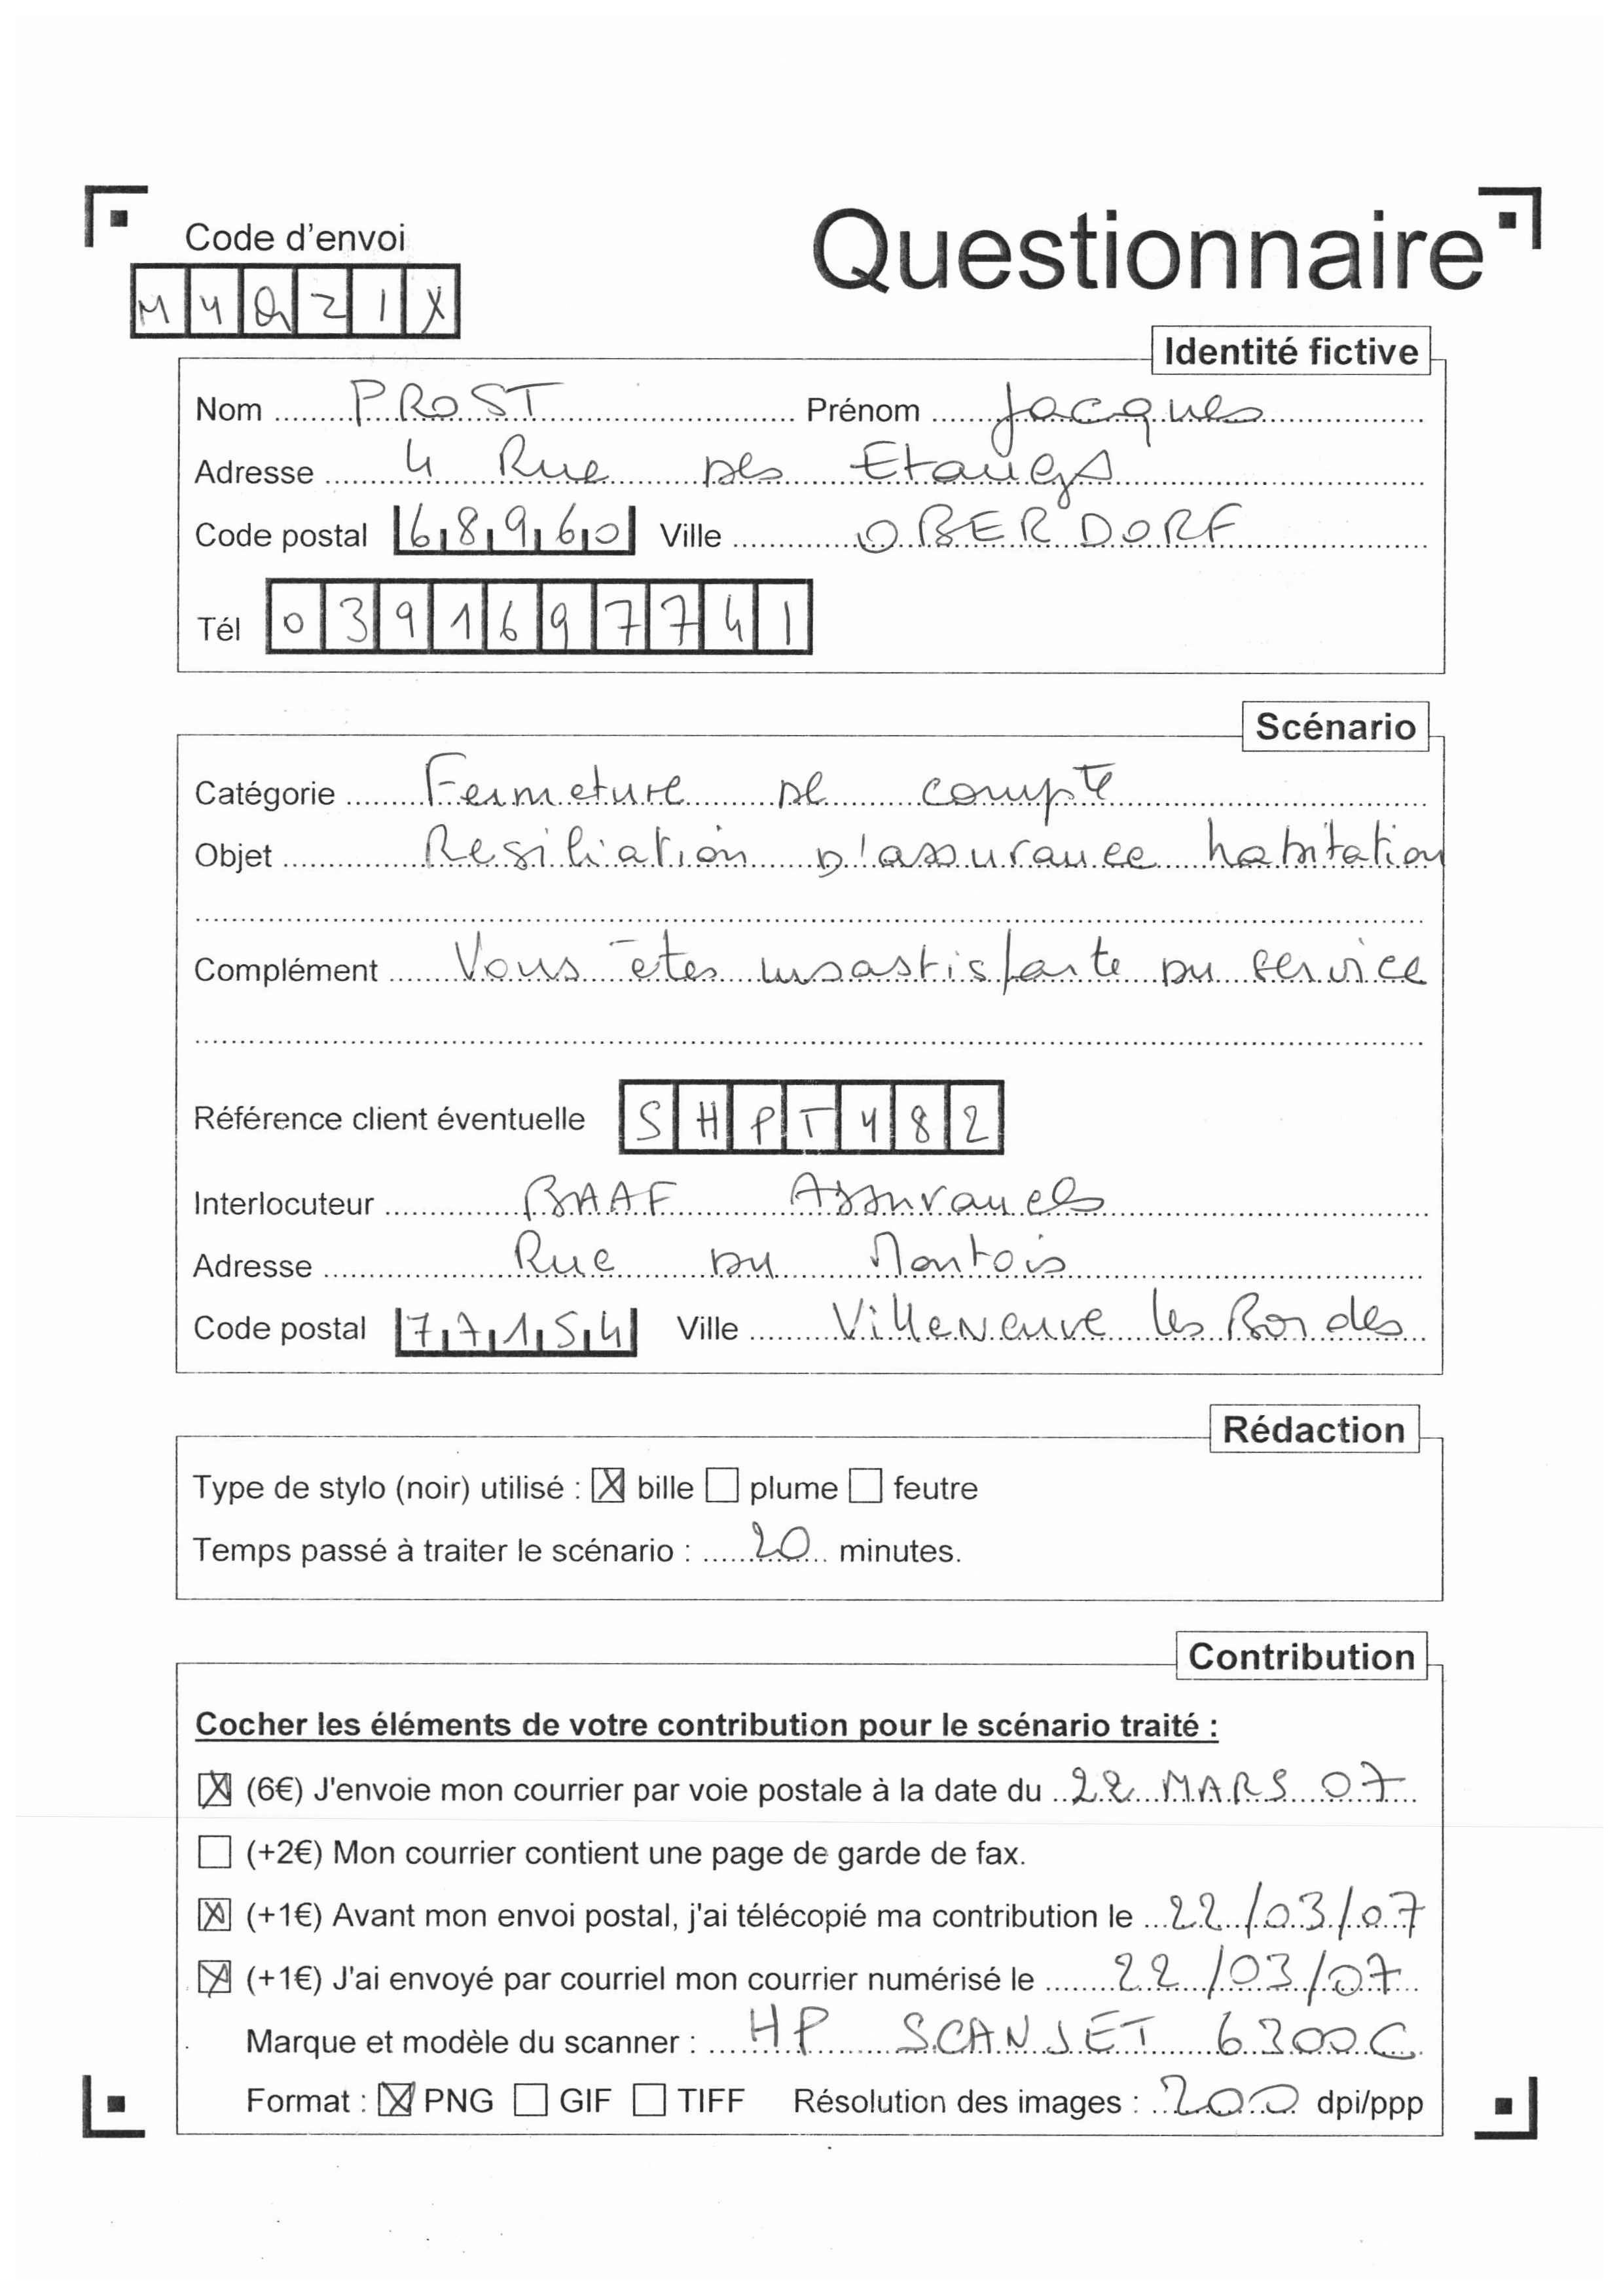 Code d'envoi
Questionnaire
M4QZIX
Identité fictive
Nom PROST Prénom Jacques
Adresse 4 Rue Des Etangs
Code postal 68960 Ville OBERDORF
Tél 0391697741
Scénario
Catégorie Fermeture de compte
Objet Resiliation D'assurance habitation
Complément Vous êtes insastisfaite Du service
Référence client éventuelle SHPT482
Interlocuteur BAAF Assurances
Adresse Rue Du Montois
Code postal 77154 Ville VilleNeuve les Bordes
Rédaction
Type de stylo (noir) utilisé : ☒ bille ☐ plume ☐ feutre
Temps passé à traiter le scénario : 20 minutes.
Contribution
Cocher les éléments de votre contribution pour le scénario traité :
☒ (6€) J'envoie mon courrier par voie postale à la date du 22 MARS 07
☐ (+2€) Mon courrier contient une page de garde de fax.
☒ (+1€) Avant mon envoi postal, j'ai télécopié ma contribution le 22/03/07
☒ (+1€) J'ai envoyé par courriel mon courrier numérisé le 22/03/07
Marque et modèle du scanner : HP SCANJET 6300C
Format : ☒ PNG ☐ GIF ☐ TIFF Résolution des images : 200 dpi/ppp